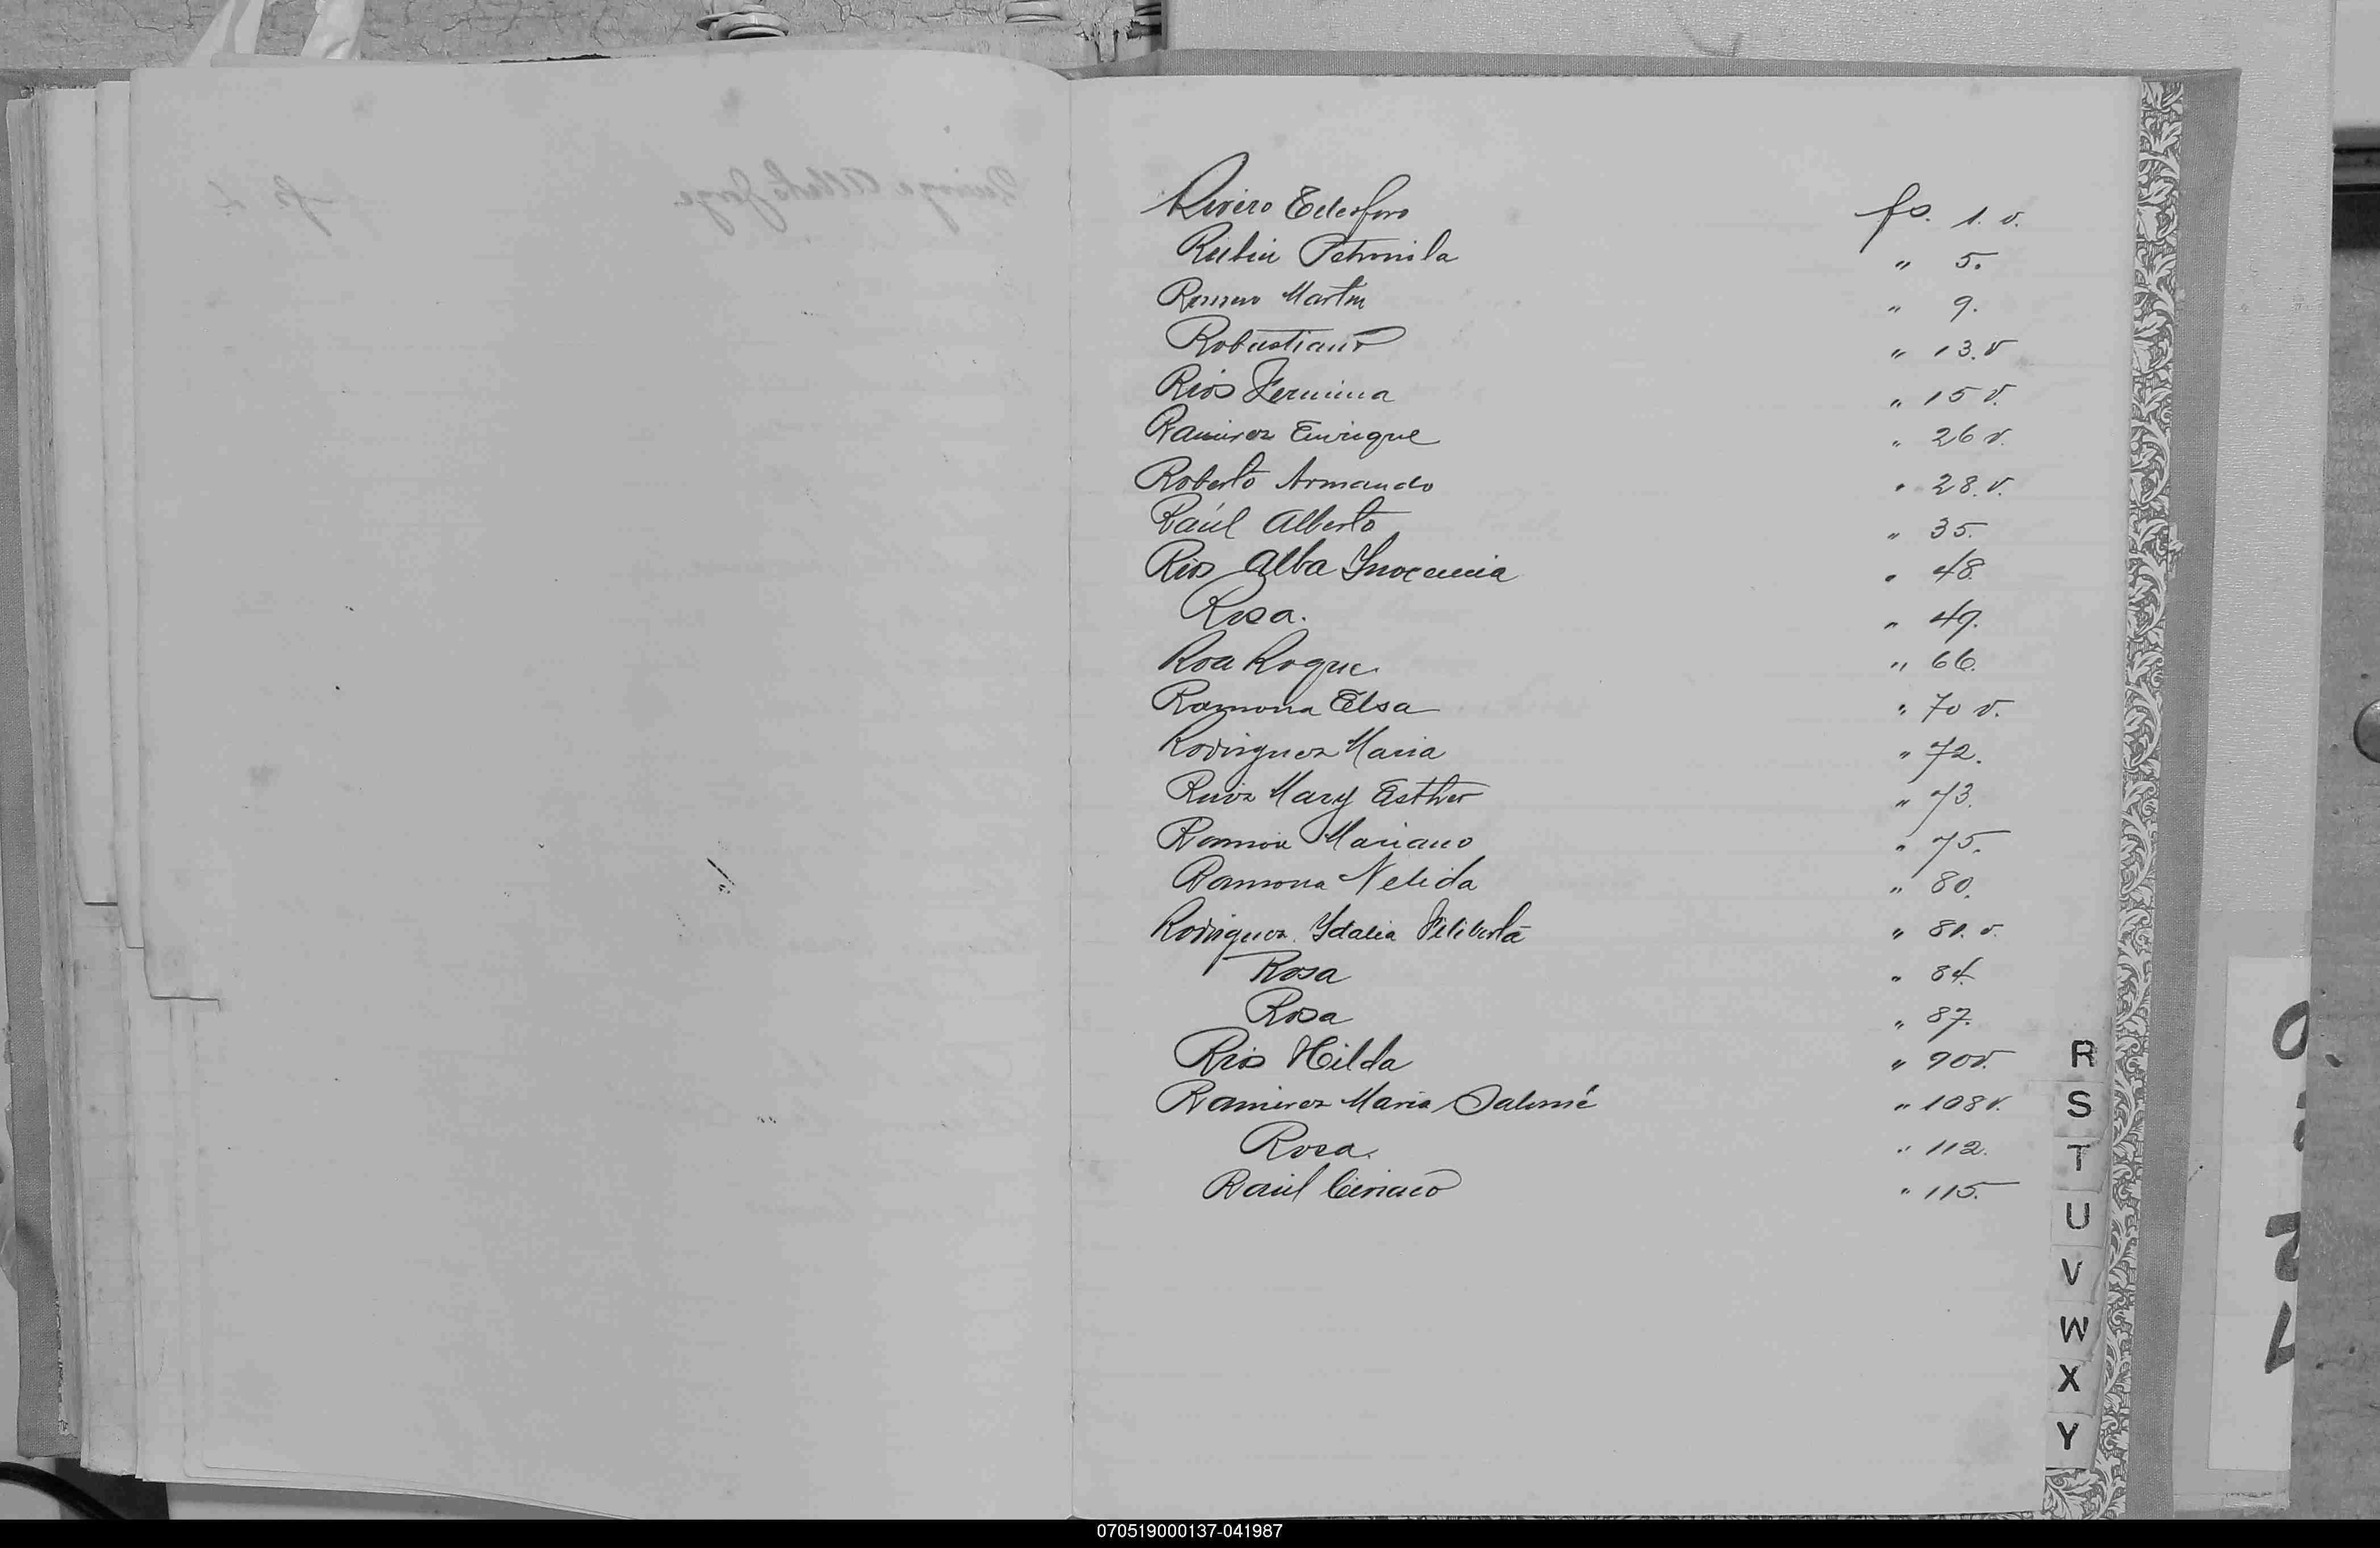 Rivero Edesforo fs. 1. v.
Rubin Petronila " 5.
Romero Martin " 9.
Robustiano " 13. v
Rios Fermina " 15 v.
Ramirez Enrique " 26 v.
Roberto Armando " 28. v.
Raúl Alberto " 35.
Rios Alba Ynocencia " 48
Rosa. " 49.
Roa Roque " 66.
Ramona Elsa " 70 v.
Rodriguez Maria " 72.
Ruiz Mary Esther " 73.
Ramón Mariano " 75.
Ramona Nelida " 80.
Rodriguez Ydalia Filiberta " 81. v.
Rosa " 84.
Rosa " 87.
Rios Hilda " 90 v.
Ramirez Maria Salomé " 108 v.
Rosa. " 112.
Raúl Ciriaco " 115.
R
S
T
U
V
W
X
Y
070519000137-041987